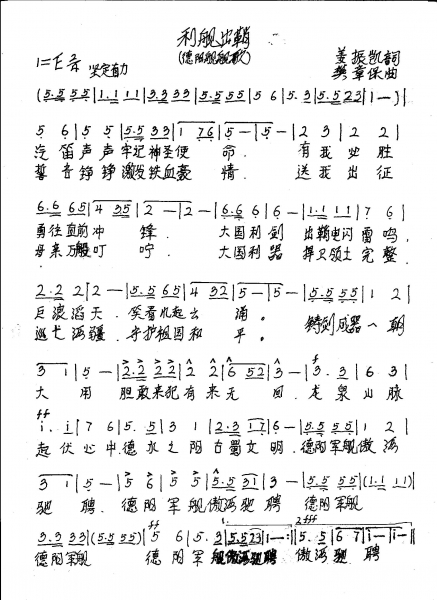 利舰出鞘
(德阳舰舰歌)
1=E 2/4 坚定有力
姜振凯詞
樊章保曲
(5.5 55|5.5 55|1.1 11|3.3 33|5.5 55|5.5 55|5 6|5.3|5.5 23|1 —)|
5 6|5 5|5.5 33|1 76|5 —|5 —|2 3|2 2|
汽笛声声牢记神圣使命. 有我必胜
誓言铮铮激发铁血豪情. 送我出征
6.6 65|4 35|2 —|2 —|6.6 6|6 —|1.1 11|7 6|
勇往直前冲锋. 大国利剑 出鞘电闪雷鸣,
母亲万般叮咛. 大国利器 捍卫领土完整.
2.2 2|2 —|5.5 65|4 32|5 —|5 —|5.5 55|1 2|
巨浪滔天. 笑看风起云涌。 铸剑成器一朝
巡弋海疆. 守护祖国和平。
3 1|5 —|2.2 22|2 2|6 52|3 —|5. 3|6 3|
大用 胆敢来犯有来无回. 龙泉山脉
ff
i. i|7 6|5. 5|3 1|2.3 17|6 —|5.5 55|1 2|
起伏心中德水之阳古蜀文明.德阳军舰傲海
3 1|5 —|5 6|5 5|5.5 31|3 —|5.5 55|(1.1 11)|
驰骋. 德阳军舰傲海驰骋 德阳军舰
3.3 33|(5.5 55)|5 6|5. 3|5.5 23|1 —:||5. 5|6 7|i —|i —||
德阳军舰 德阳军舰傲海驰骋 傲海驰骋